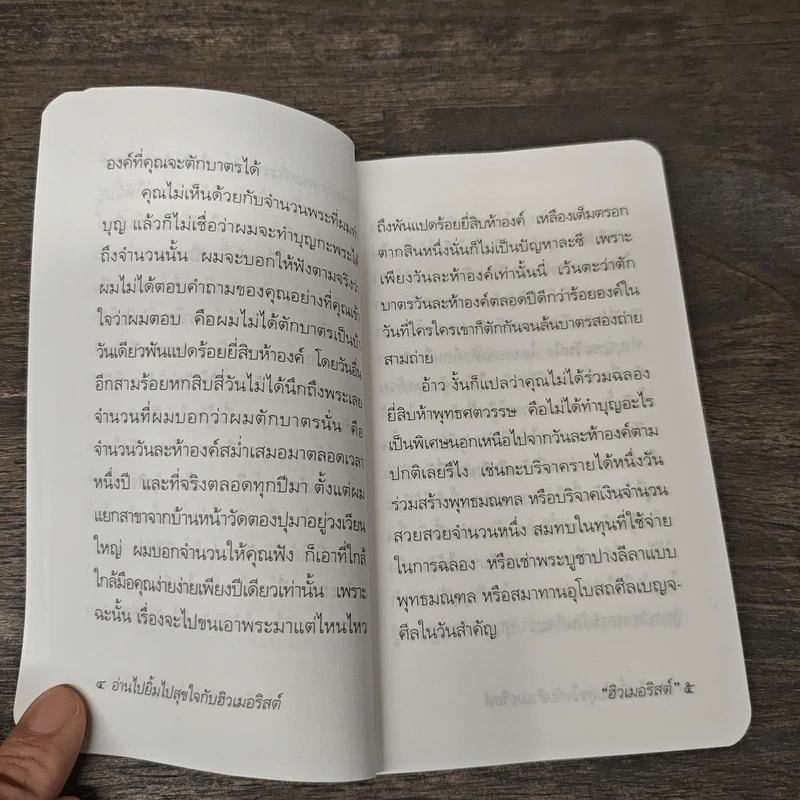 องค์ที่คุณจะตักบาตรได้
คุณไม่เห็นด้วยกับจำนวนพระที่ผมทำ
บุญ แล้วก็ไม่เชื่อว่าผมจะทำบุญกะพระได้
ถึงจำนวนนั้น ผมจะบอกให้ฟังตามจริงว่า
ผมไม่ได้ตอบคำถามของคุณอย่างที่คุณเข้า
ใจว่าผมตอบ คือผมไม่ได้ตักบาตรเป็นบ้า
วันเดียวพันแปดร้อยยี่สิบห้าองค์ โดยวันอื่น
อีกสามร้อยหกสิบสี่วันไม่ได้นึกถึงพระเลย
จำนวนที่ผมบอกว่าผมตักบาตรนั่น คือ
จำนวนวันละห้าองค์สม่ำเสมอมาตลอดเวลา
หนึ่งปี และที่จริงตลอดทุกปีมา ตั้งแต่ผม
แยกสาขาจากบ้านหน้าวัดตองปุมาอยู่วงเวียน
ใหญ่ ผมบอกจำนวนให้คุณฟัง ก็เอาที่ใกล้
ใกล้มือคุณง่ายง่ายเพียงปีเดียวเท่านั้น เพราะ
ฉะนั้น เรื่องจะไปขนเอาพระมาแต่ไหนไหว
๔ อ่านไปยิ้มไปสุขใจกับฮิวเมอริสต์
ถึงพันแปดร้อยยี่สิบห้าองค์ เหลืองเต็มตรอก
ตากสินหนึ่งนั่นก็ไม่เป็นปัญหาละซี เพราะ
เพียงวันละห้าองค์เท่านั้นนี่ เว้นตะว่าตัก
บาตรวันละห้าองค์ตลอดปีดีกว่าร้อยองค์ใน
วันที่ใครใครเขาก็ตักกันจนล้นบาตรสองถ่าย
สามถ่าย
อ้าว งั้นก็แปลว่าคุณไม่ได้ร่วมฉลอง
ยี่สิบห้าพุทธศตวรรษ คือไม่ได้ทำบุญอะไร
เป็นพิเศษนอกเหนือไปจากวันละห้าองค์ตาม
ปกติเลยรึไง เช่นกะบริจาครายได้หนึ่งวัน
ร่วมสร้างพุทธมณฑล หรือบริจาคเงินจำนวน
สวยสวยจำนวนหนึ่ง สมทบในทุนที่ใช้จ่าย
ในการฉลอง หรือเช่าพระบูชาปางลีลาแบบ
พุทธมณฑล หรือสมาทานอุโบสถศีลเบญจ-
ศีลในวันสำคัญ
“ฮิวเมอริสต์” ๕